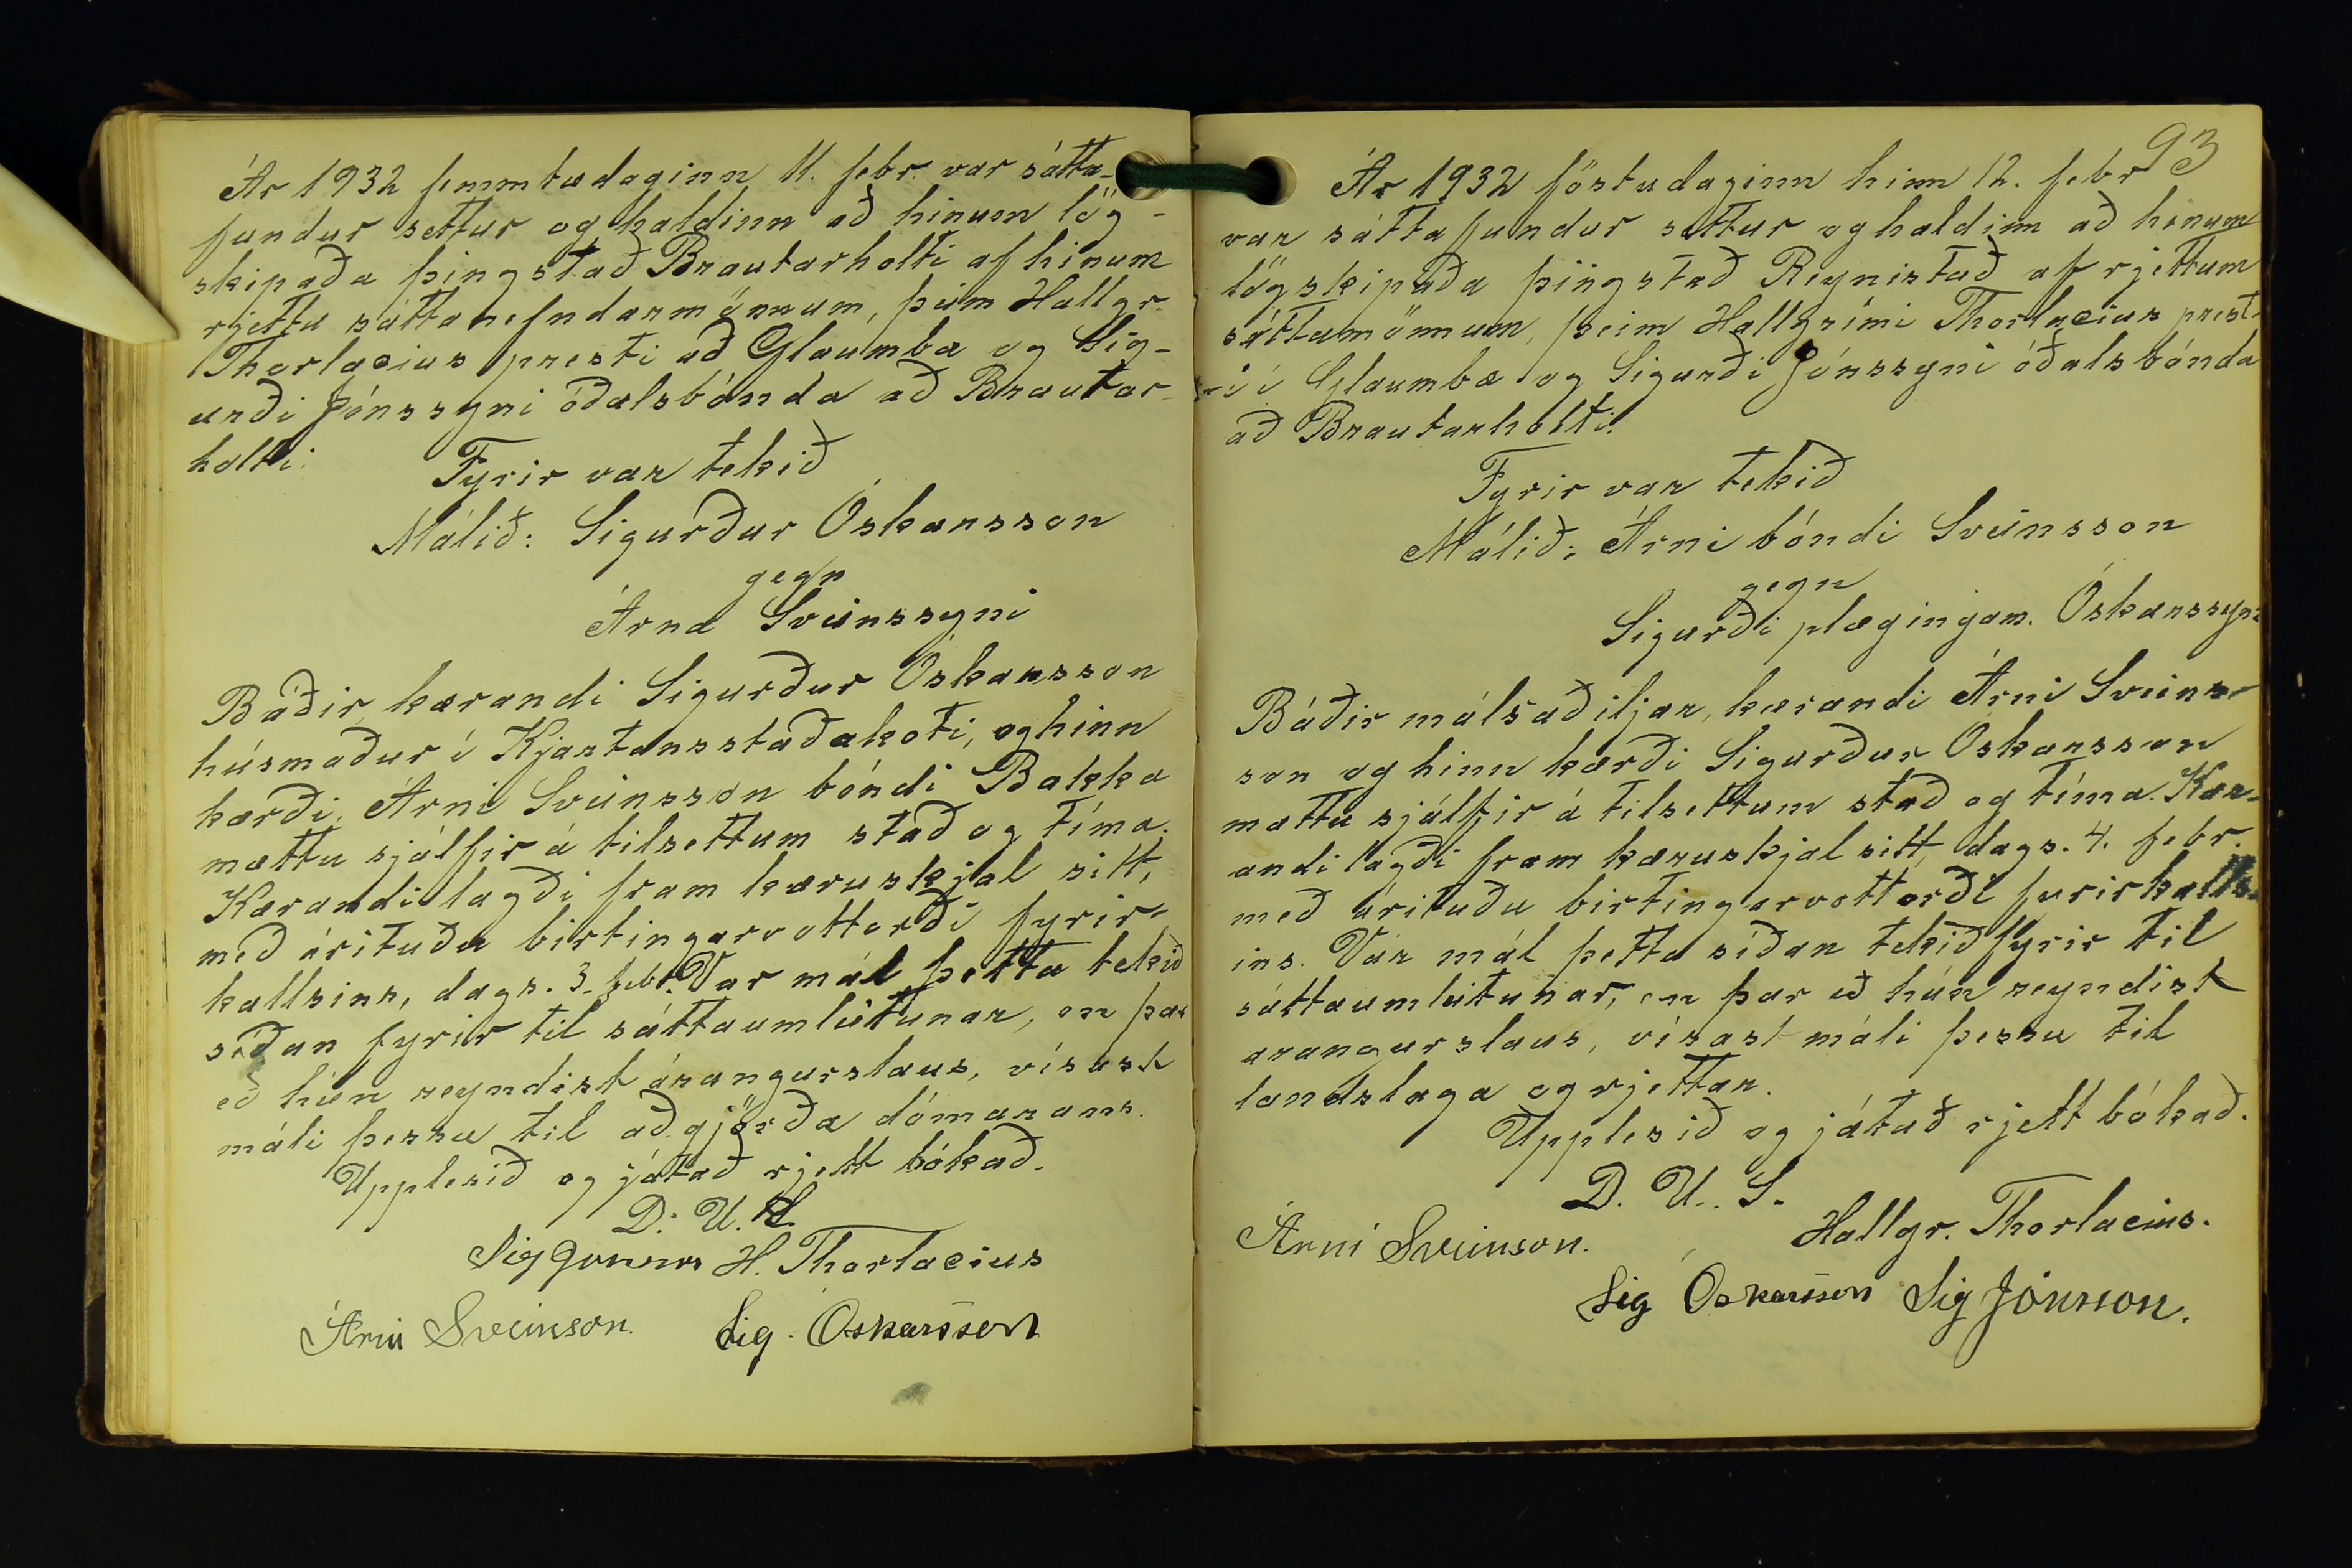 Ár 1932 fimmtudaginn 11. febr. var sátta-
fundur settur og haldinn að hinum lög-
skipaða þingstað Brautarholti af hinum
rjettu sáttanefndarmönnum, þeim Hallgr.
Thorlacius presti að Glaumbæ og Sig-
urði Jónssyni óðalsbónda að Brautar-
holti.
Fyrir var tekið
Málið: Sigurður Óskarsson
gegn
Árna Sveinssyni
Báðir, kærandi Sigurður Óskarsson
húsmaður í Kjartansstaðakoti, og hinn
kærði, Árni Sveinsson bóndi Bakka
mættu sjálfir á tilsettum stað og tíma.
Kærandi lagði fram kæruskjal sitt,
með árituðu birtingarvottorði fyrir-
kallsins, dags. 3. febr. Var mál þetta tekið
síðan fyrir til sáttaumleitunar, en þar
eð hún reyndist árangurslaus, vísast
máli þessu til aðgjörða dómarans.
Upplesið og játað rjett bókað.
D. U. S.
Sig Jónsson H. Thorlacius
Árni Sveinson. Sig. Óskarsson
93
Ár 1932 föstudaginn hinn 12. febr
var sáttafundur settur og haldinn að hinum
lögskipaða þingstað Reynistað af rjettum
sáttamönnum, þeim Hallgrími Thorlacius prest-
i í Glaumbæ og Sigurði Jónssyni óðalsbónda
að Brautarholti.
Fyrir var tekið
Málið: Árni bóndi Sveinsson
gegn
Sigurði plægingam. Óskarssyni
Báðir málsaðiljar, kærandi Árni Sveins-
son og hinn kærði Sigurður Óskarsson
mættu sjálfir á tilsettum stað og tíma. Kær-
andi lagði fram kæruskjal sitt, dags. 4. febr.
með árituðu birtingarvottorði fyrirkalls-
ins. Var mál þetta síðan tekið fyrir til
sáttaumleitunar, en þar eð hún reyndist
árangurslaus, vísast máli þessu til
landslaga og rjettar.
Upplesið og játað rjett bókað.
D. U. S.
Árni Sveinson. Hallgr. Thorlacius.
Sig Óskarsson Sig Jónsson.